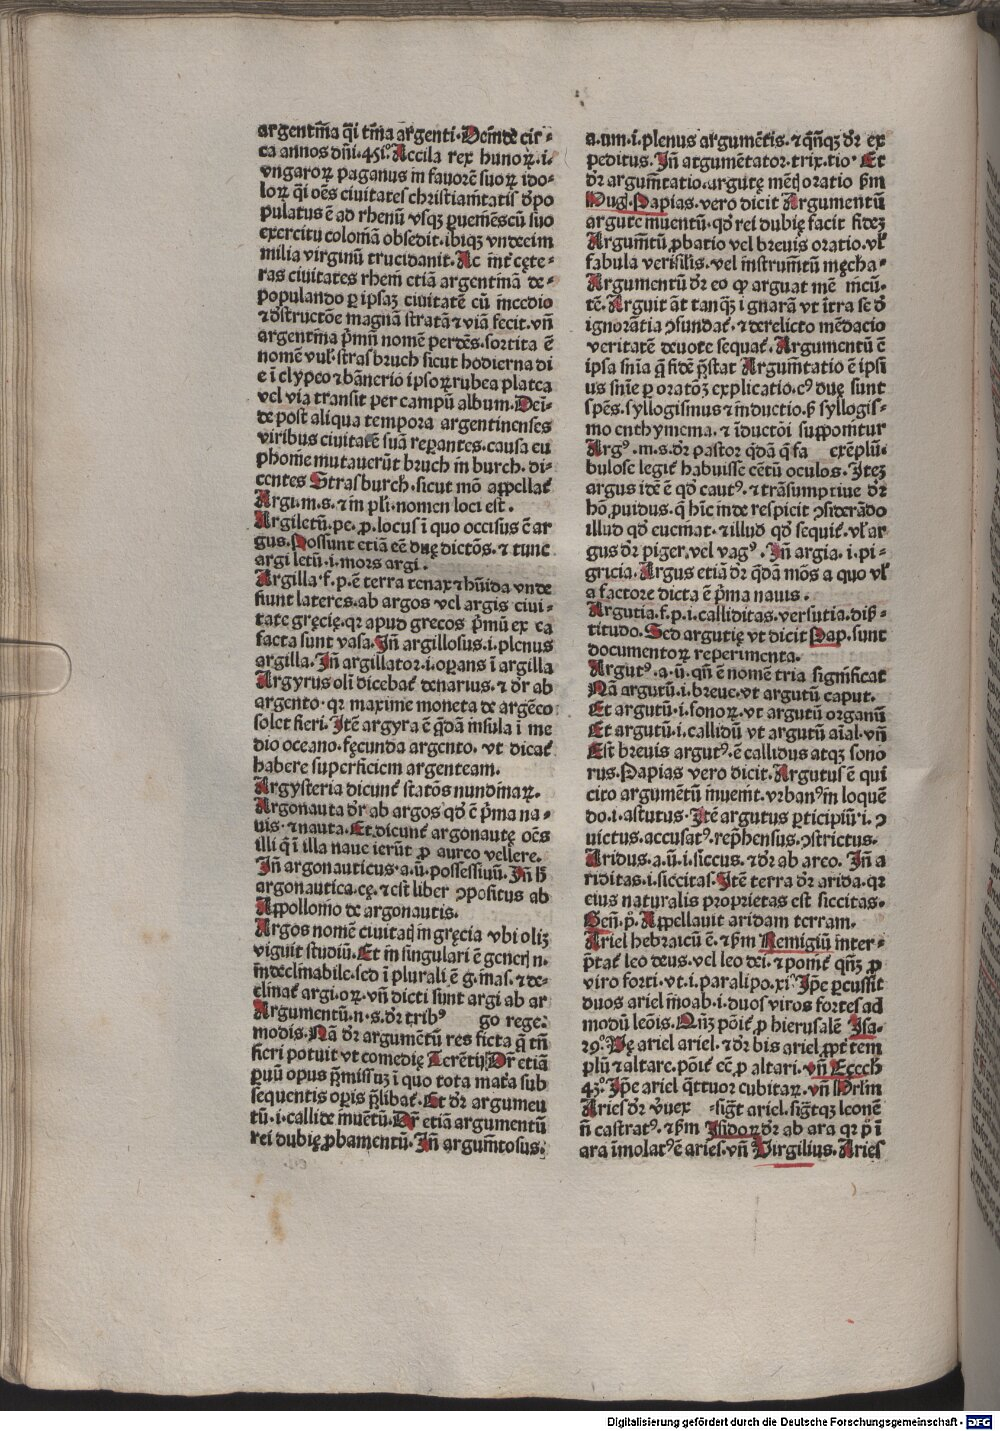 argentina q̄i t̄ma argenti. Deinde cir-
ca annos dn̄i .451. Accila rex hunoꝝ .i.
vngaroꝝ paganus in fauorē suoꝝ ido-
loꝝ q̄i oēs ciuitates christianitatis dꝑo
pulatus ē ad rhenū vsqꝫ ꝑueniēs cū suo
exercitu coloniā obsedit. ibiqꝫ vndecim
milia virginū trucidauit. Ac int̄ cęte-
ras ciuitates rheni etiā argentinā de-
populando ꝑ ipsaꝫ ciuitatē cū incēdio
⁊ dſtructōe magnā stratā ⁊ viā fecit. vn̄
argentina p̄mū nomē perdēs. sortita ē
nomē vulꝰ strasbruch sicut hodierna di
e ī clypeo ⁊ bānerio ipsoꝝ rubea platea
vel via transit per campū album. Deī-
de post aliqua tempora argentinenses
viribus ciuitatē suā reꝑantes. causa eu
phonie mutauerūt bruch in burch. di-
centes Strasburch. sicut mō appellat᷑
Argi. m. s. ⁊ in pli. nomen loci est.
Argiletū. pe. ꝓ. locus ī quo occisus ē ar
gus. Possunt etiā eē duę dictōs. ⁊ tunc
argi letū .i. mors argi.
Argilla. f. p. ē terra tenax ⁊ hūida vnde
fiunt lateres. ab argos vel argis ciui-
tate gręcię. qꝛ apud grecos p̄mū ex ea
facta sunt vasa. Jn̄ argillosus .i. plenus
argilla. Jn̄ argillator .i. oꝑans ī argilla
Argyrus oli dicebat᷑ denarius. ⁊ dr̄ ab
argento. qꝛ maxime moneta de argēto
solet fieri. Jtē argyra ē q̄dā insula ī me
dio oceano. fęcunda argento. vt dicat᷑
habere superficiem argenteam.
Argysteria dicunt᷑ statōs nundinaꝝ.
Argonauta dr̄ ab argos qd̄ ē p̄ma na-
uis. ⁊ nauta. Et dicunt᷑ argonautę oēs
illi q̄ ī illa naue ierūt ꝓ aureo vellere.
Jn̄ argonauticus. a. ū. possessiuū. Jn̄ h̄
argonautica. cę. ⁊ est liber ꝯpositus ab
Appollonio de argonautis.
Argos nomē ciuitat in gręcia vbi oliꝫ
viguit studiū. Et in singulari ē generis n.
indeclinabile. sed ī plurali ē g. mas. ⁊ de-
clinat᷑ argi. oꝝ. vn̄ dicti sunt argi ab ar
Argumentū. n. s. dr̄ tribꝰ go rege.
modis. Nā dr̄ argumētū res ficta q̄ tn̄
fieri potuit vt comedię Terētij Dr̄ etiā
ꝑuū opus p̄missuꝫ ī quo tota mat̄ia sub
sequentis oꝑis p̄libat᷑. Et dr̄ argumen
tū .i. callide inuētū. Dr̄ etiā argumentū
rei dubię ꝓbamentū. Jn̄ argumtosus.
a. um. i. plenus argumētis. ⁊ qn̄qꝫ dr̄ ex
peditus. Jn̄ argumētator. trix. tio. Et
dr̄ argum̄tatio. argutę mētis oratio ẜm
Hug. Papias. vero dicit Argumentū
argute inuentū. qd̄ rei dubię facit fideꝫ
Argum̄tū ꝓbatio vel breuis oratio. vl̄
fabula verisilis. vel instrum̄tū męcha-
Argumentū dr̄ eo ꝙ arguat mē nicū.
tē. Arguit āt tanqꝫ ignarā vt īra se d̄
ignorātia ꝯfundat᷑. ⁊ derelicto mēdacio
veritatē deuote sequat᷑. Argumentū ē
ipsa sn̄ia q̄ fidē p̄stat Argum̄tatio ē ipsi
us sn̄ie ꝑ oratōꝫ explicatio. cꝰ duę sunt
spēs. syllogismus ⁊ inductio. ꝓ syllogis-
mo enthymema. ⁊ īductōi supponitur
Argꝰ. m. s. dr̄ pastor q̄dā q̄ fa exēplū.
bulose legit᷑ habuisse cētū oculos. Jteꝫ
argus idē ē qd̄ cautꝰ. ⁊ trāsumptiue dr̄
hō ꝓuidus. q̄ hinc inde respicit ꝯsiderādo
illud qd̄ euenit. ⁊ illud qd̄ sequit᷑. vl̄ ar
gus dr̄ piger. vel vagꝰ. Jn̄ argia. i. pi-
gricia. Argus etiā dr̄ q̄dā mōs a quo vl̄
a factore dicta ē p̄ma nauis.
Argutia. f. p. i. calliditas. versutia. disẜ-
titudo. Sed argutię vt dicit Pap. sunt
documentoꝝ reperimenta.
Argutꝰ. a. ū. qn̄ ē nomē tria significat
Nā argutū. i. breue. vt argutū caput.
Et argutū. i. sonoꝝ. vt argutū organū
Et argutū. i. callidū vt argutū aīal. vn̄
Est breuis argutꝰ. ē callidus atqꝫ sono
rus. Papias vero dicit. Argutus ē qui
cito argumētū inuenit. vrbanꝰ in loquē
do. i. astutus. Jtē argutus ꝑticipiū .i. ꝯ
uictus. accusatꝰ. rep̄hensus. ꝯstrictus.
Aridus. a. ū. i. siccus. ⁊ dr̄ ab areo. Jn̄ a
riditas. i. siccitas. Jtē terra dr̄ arida. qꝛ
eius naturalis proprietas est siccitas.
Gen̄. p̄. Appellauit aridam terram.
Ariel hebraicū ē. ⁊ ẜm Remigiū inter-
p̄tat᷑ leo deus. vel leo dei. ⁊ ponit᷑ qn̄qꝫ ꝓ
viro forti. vt .i. paralipo. xi. Jp̄e ꝑcussit
duos ariel moab .i. duos viros fortes ad
modū leōis. Qn̄qꝫ pōit᷑ ꝓ hierusalē Jsa-
29. Vę ariel ariel. ⁊ dr̄ bis ariel ꝓpt̄ tem
plū ⁊ altare. pōit᷑ eē ꝓ altari. vn̄ Eçech
43. Jp̄e ariel q̄ttuor cubitaꝝ. vn̄ Prlīm
Aries dr̄ v̄uex -sigt̄ ariel. sigt̄qꝫ leonē
n̄ castratꝰ. ⁊ ẜm Jsidoꝝ dr̄ ab ara qꝛ p̄ ī
ara īmolatꝰ ē aries. vn̄ Virgilius. Aries
Digitalisierung gefördert durch die Deutsche Forschungsgemeinschaft - DFG